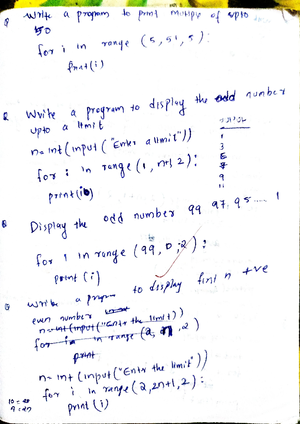 Q Write a program to print multiple of upto
50
for i in range (5, 51, 5):
print(i)
Q Write a program to display the odd number
upto a limit
n= int(input ("Enter a limit"))
for i in range (1, n+1 2):
print(i)
1
3
5
7
9
11
Q Display the odd number 99 97, 95 ..... 1
for i in range (99, 0, -2):
print (i)
Q Write a program to display first n +ve
even number
n=int(input("Enter the limit))
for in in range (2, n, 2)
print
n= int (input("Enter the limit"))
for i in range (2, 2n+1, 2):
print (i)